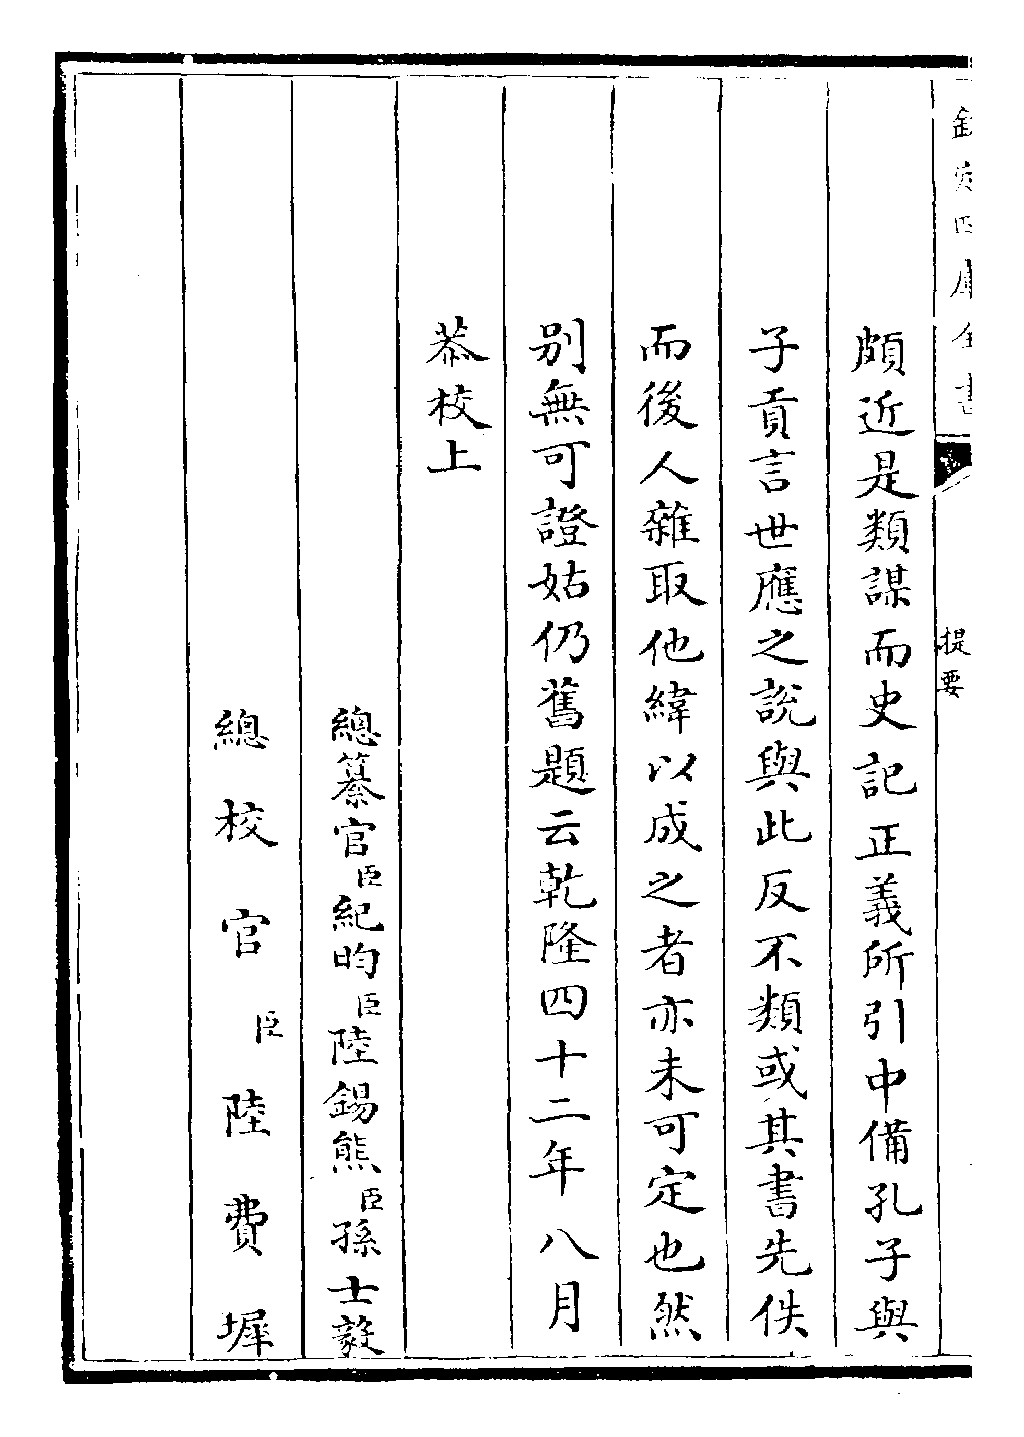 欽定四庫全書
提要
頗近是類謀而史記正義所引中備孔子與
子貢言世應之說與此反不類或其書先佚
而後人雜取他緯以成之者亦未可定也然
别無可證姑仍舊題云乾隆四十二年八月
恭校上
總纂官臣紀昀臣陸錫熊臣孫士毅
總校官臣陸費墀